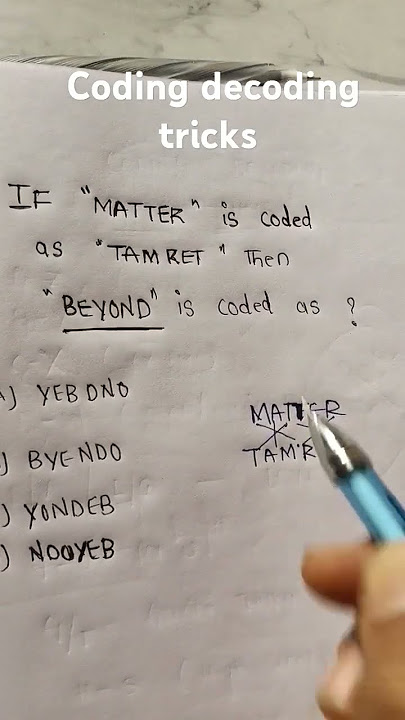 Coding decoding
tricks
IF "MATTER" is coded
as "TAMRET" Then
"BEYOND" is coded as ?
A) YEBDNO
) BYENDO
) YONDEB
) NDOYEB
MATTER
TAMR